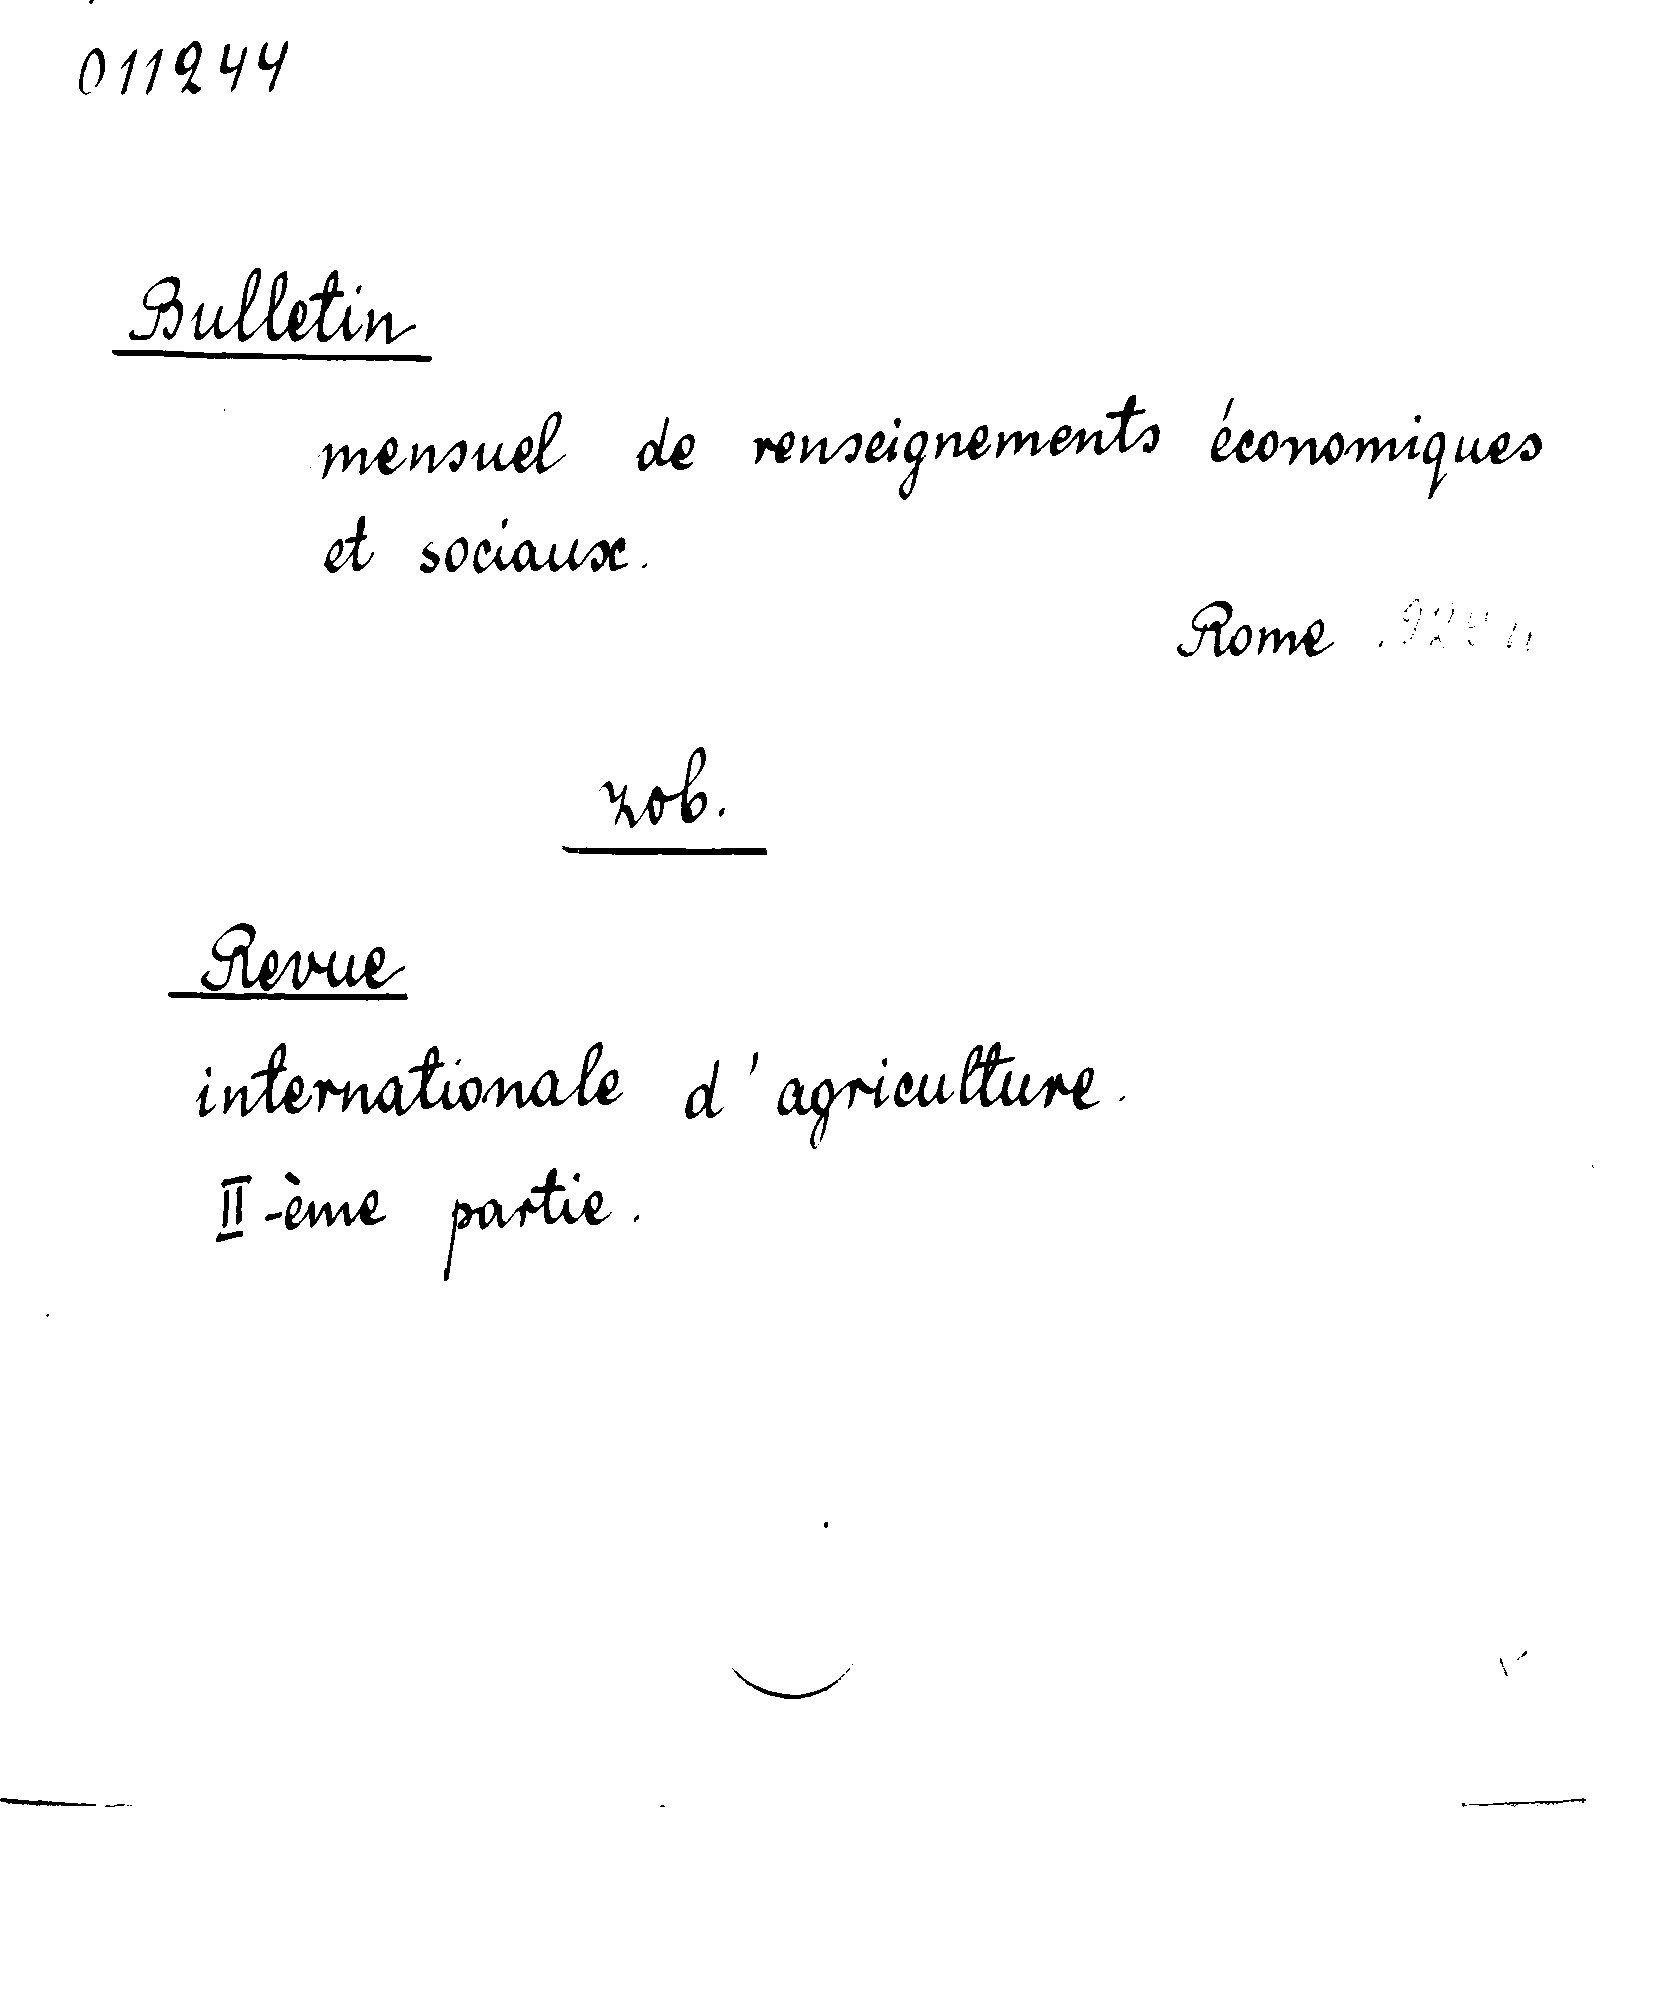 011244
Bulletin
mensuel de renseignements économiques
et sociaux.
Rome
zob.
Revue
internationale d'agriculture.
II-ème partie.